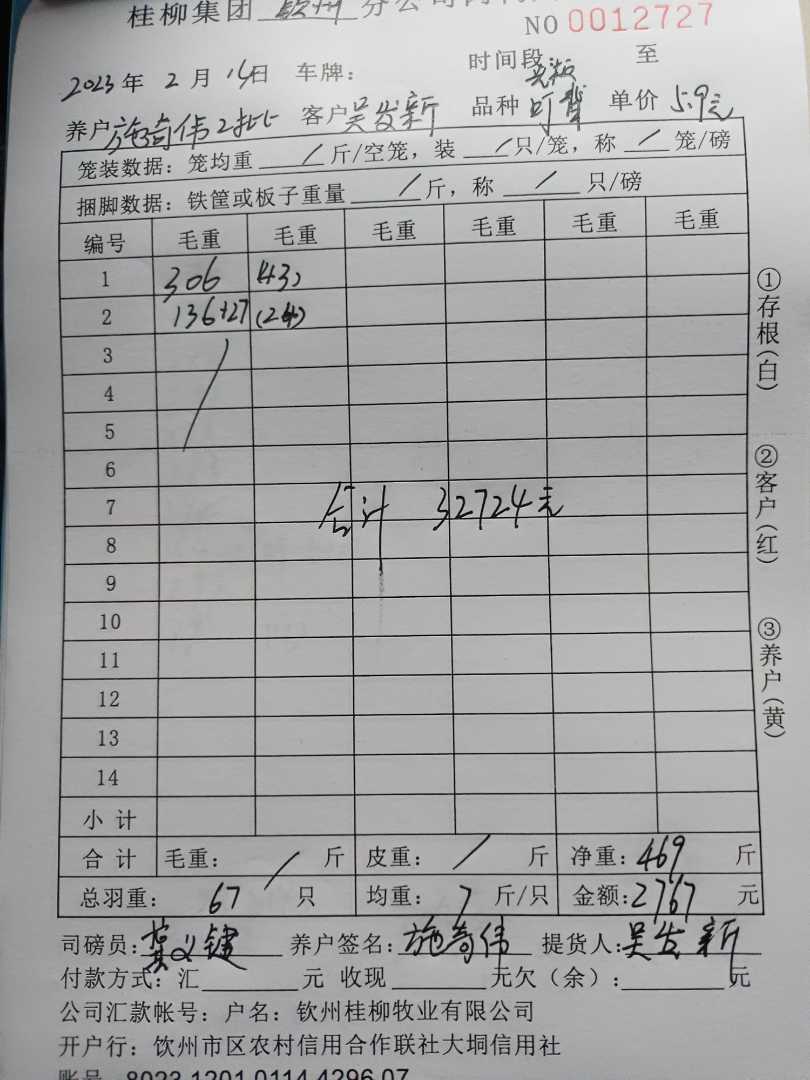 桂柳集团 钦州 分公司
NO 0012727
2023年 2 月 14日 车牌: 时间段 至
养户 施奇伟2批 客户 吴发新 品种 单价 5.9元
笼装数据: 笼均重 / 斤/空笼, 装 / 只/笼, 称 / 笼/磅
捆脚数据: 铁筐或板子重量 / 斤, 称 / 只/磅
编号 毛重 毛重 毛重 毛重 毛重 毛重
1 306 (43)
2 136+27 (24)
3
4
5
6
7 合计 32724元
8
9
10
11
12
13
14
小 计
合 计 毛重: / 斤 皮重: / 斤 净重: 469 斤
总羽重: 67 只 均重: 7 斤/只 金额: 2767 元
司磅员: 养户签名: 施奇伟 提货人: 吴发新
付款方式: 汇 元 收现 元欠（余）: 元
公司汇款帐号: 户名: 钦州桂柳牧业有限公司
开户行: 钦州市区农村信用合作联社大垌信用社
账号 8023 1201 0114 4296 07
①存根(白)
②客户(红)
③养户(黄)